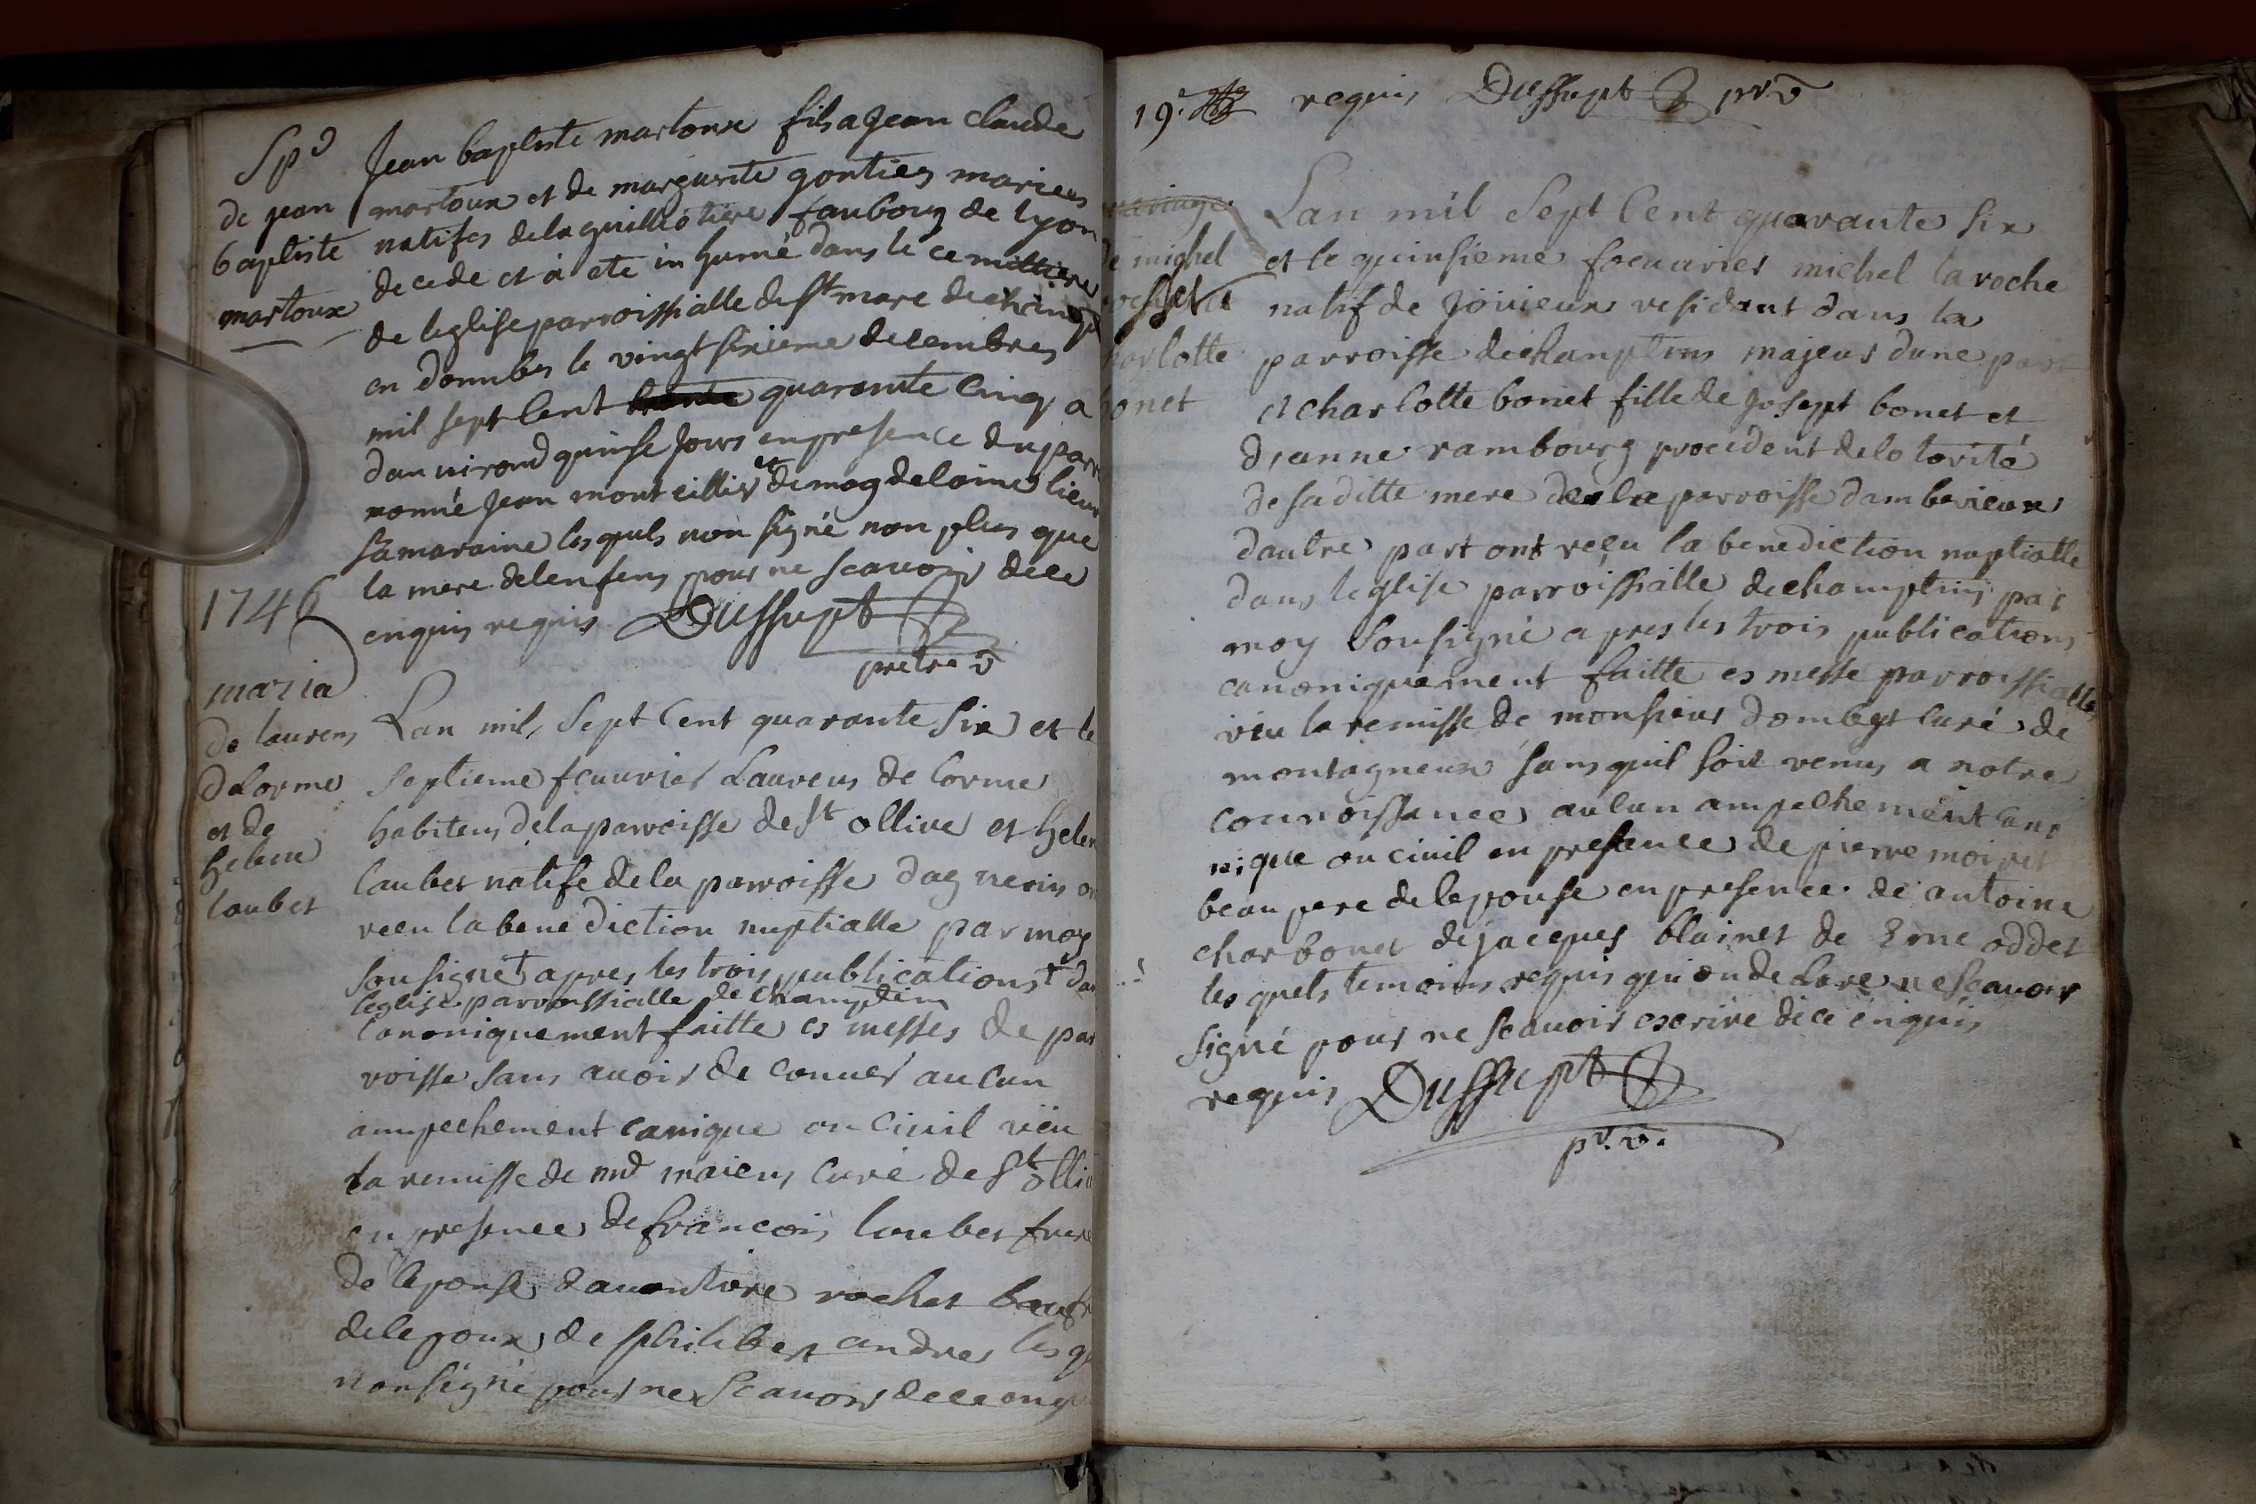 Sp^e
de jean
baptiste
martoux
Jean baptiste martoux fils a Jean claude
martoux et de marguerite gontier maries
natifes dela guilliotiere faubourg de lyon
decede et à ete in humé dans le cemittiere
de leglise parroissialle de st marc de champ
en dombes le vingt sixieme decembres
mil sept Cent quarante Cinq a
dau viround quinse Jours en presence du parr
nomé Jean mont eillier et de magdelaine lieu
sa maraine lesquels non signé non plus que
la mere delenfens pour ne scauoir dece
enquis requis Dussupt
pretre v
1746
maria
de laurens
delorme
et de
helene
loubet
Lan mil, Sept Cent quarante Six et le
Septieme feuurier Laurens de lorme
habitens dela parroisse de st ollive et helen
loubet natife dela parroisse dagnerins on
receu la bene diction nuptialle par moy
sousigné apres les trois publications † dan
leglise parroissialle de champtein
Canoniquement faitte es messes de par
roisse sans auoir de couuer au cun
ampechement canique ou Ciuil vëu
la remisse de mr maieus Curé de St ollive
en presence de francois loubet frere
de lepouse & auonture rochet beaufr
delepoux, de philibert andres les q
non signé pour ne Scauoir dece enqu
19.e requis Dussupt prv
mariage
de michel
charlotte
bonet
Lan mil Sept Cent quarante Six
et le quinsieme feeuurier michel la roche
natif de joivieux residant dans la
parroisse dechamptins majeur dune part
et charlotte bonet fille de Josept bonet et
djeanne rambourg procedent delotorité
de sa ditte mere de la parroisse damberieux
dautre part ont reçu la benediction nuptialle
dans leglise parroissialle de champtins par
moy Sousigné apres les trois publications
canoniquement faitte es messe parroissialles
vëu la remisse de monsieur dombept curé de
montagneux sans quil soit venus a notre
connoissance aucun ampechement cano
nique ou ciuil en presence de pierre moiret
beau pere de lepouse en presence de antoine
charbonet de jacques blainet de Eme oddet
les quels temoins requis qui on de Clare ne Scauoir
signé pour ne scauoir escrire de ce enquis
requis Dussupt
pr. v.